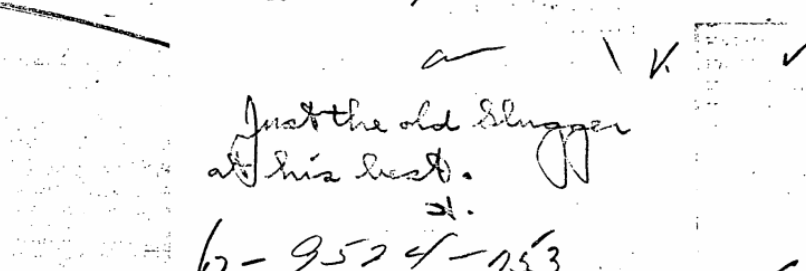 Just the old Slugger
at his best.
H.
62-9524-253